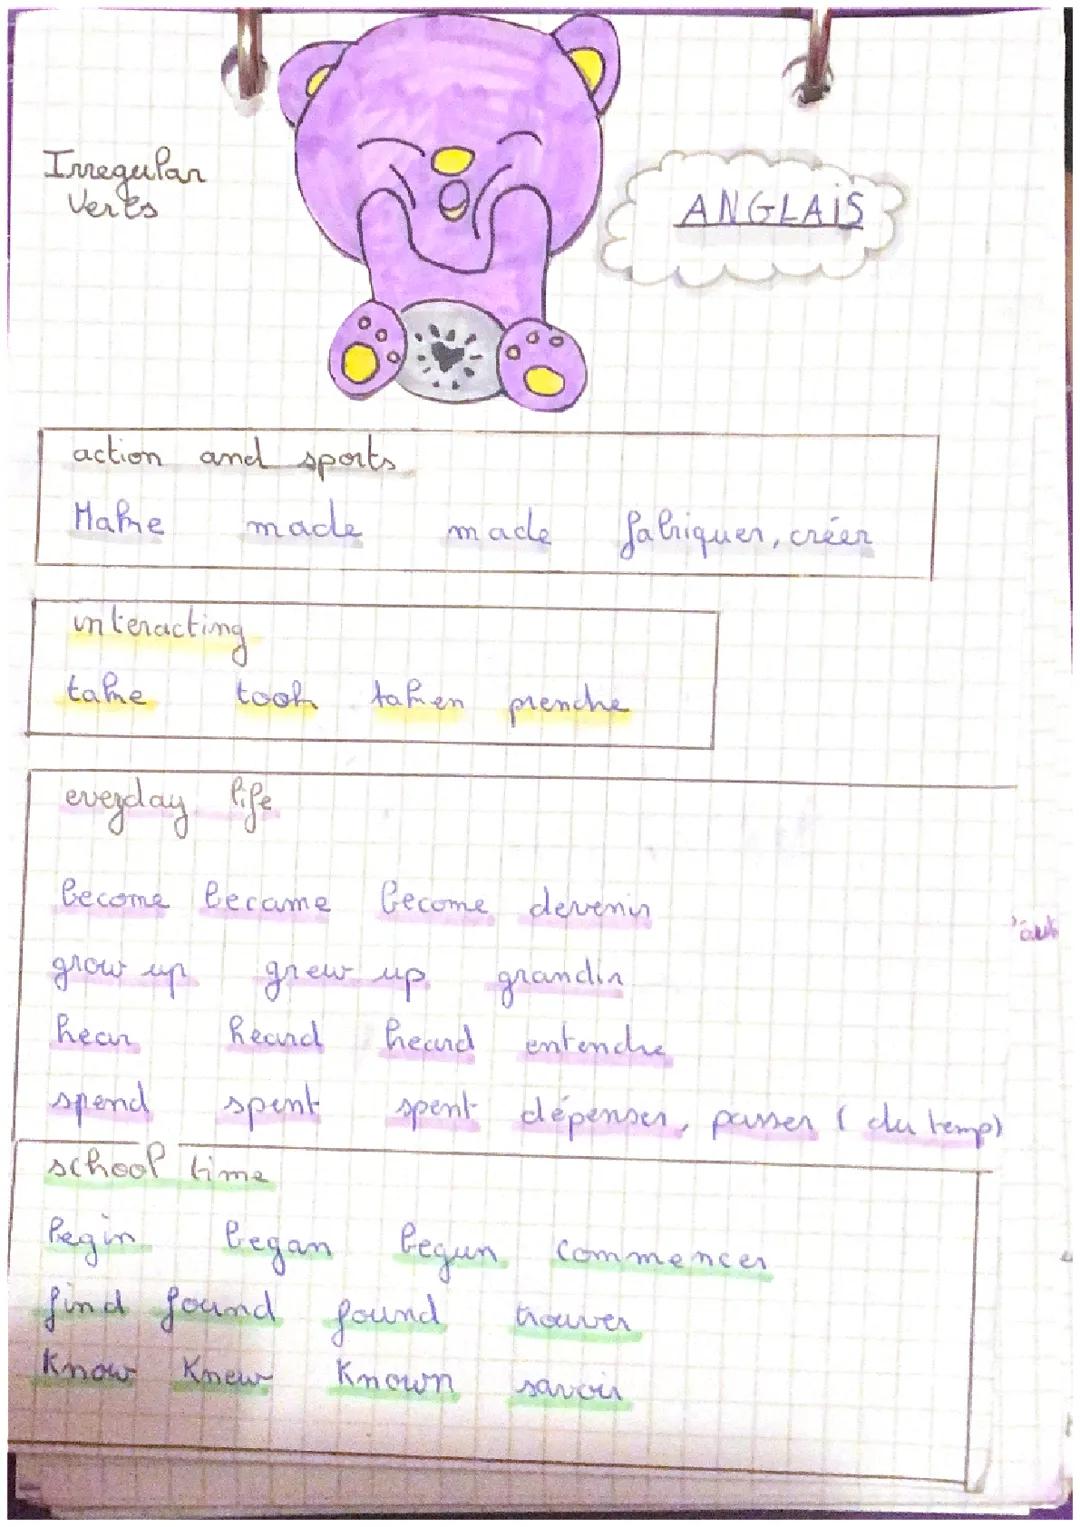 Irregular
Verbs
ANGLAIS
action and sports
Make made made fabriquer, créer
interacting
take took taken prendre
everday life
become became become devenir
grow up grew up grandir
hear heard heard entendre
spend spent spent dépenser, passer (du temps)
school time
begin began begun commencer
find found found trouver
Know Knew Known savoir